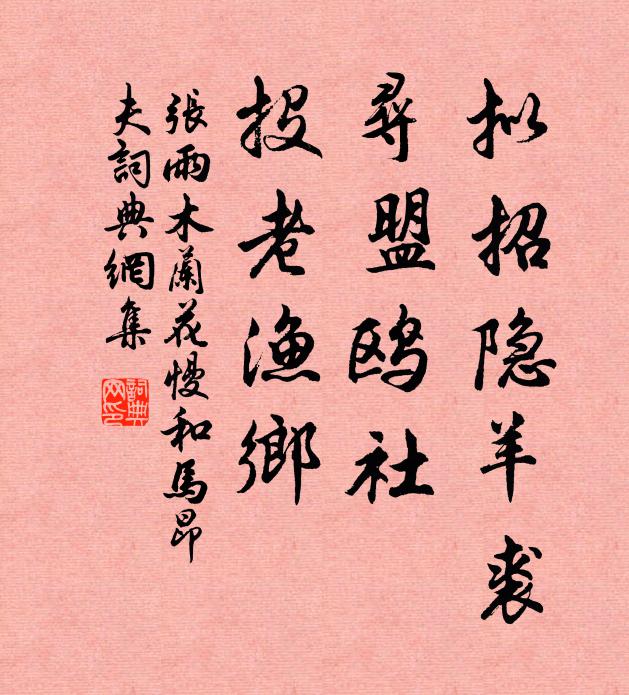 拟招隐羊裘
尋盟鸥社
投老渔鄉
張雨木蘭花慢和馬昂
夫詞典網集
詞典
网印